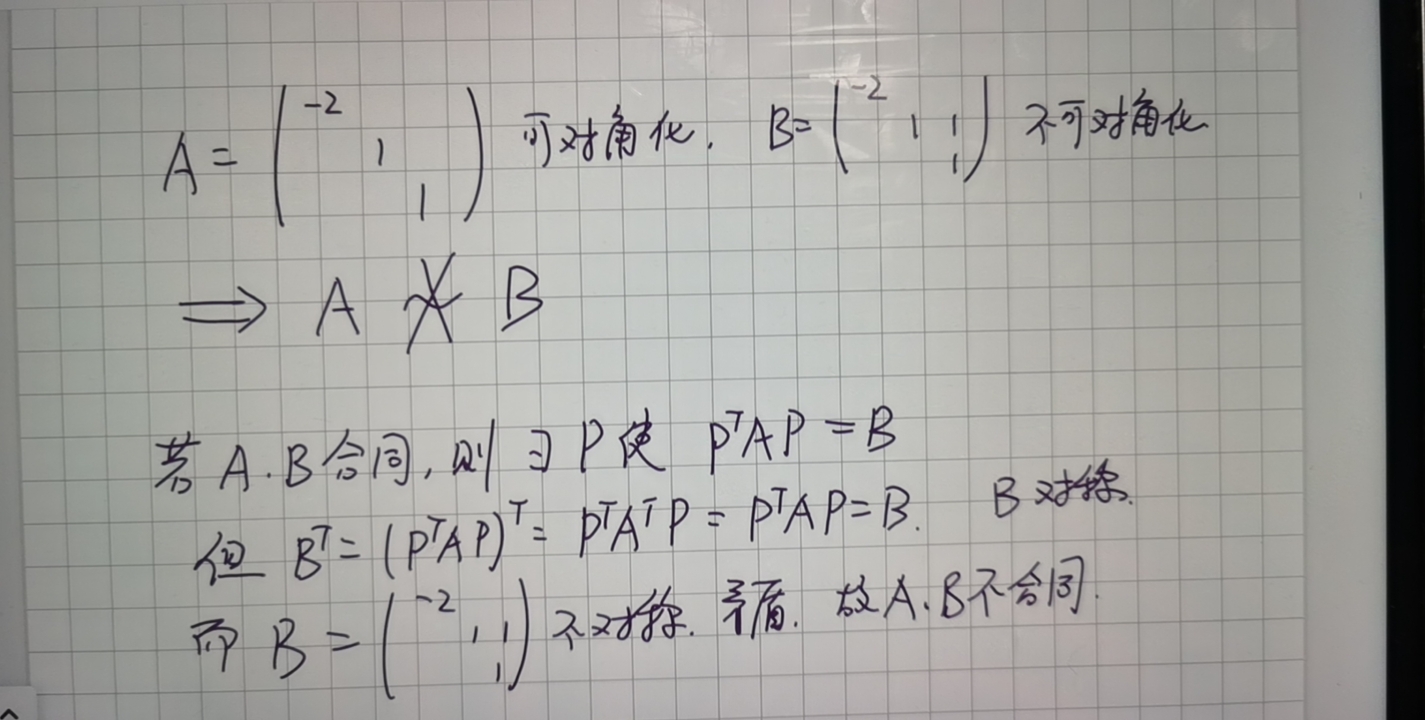 A = (-2 1 1) 可对角化. B = (-2 1 1 1) 不可对角化
⟹ A ≁ B
若 A.B合同, 则 ∃ P 使 PᵀAP = B
但 Bᵀ = (PᵀAP)ᵀ = PᵀAᵀP = PᵀAP = B. B对称.
而 B = (-2 1 1 1) 不对称. 矛盾. 故A.B不合同.